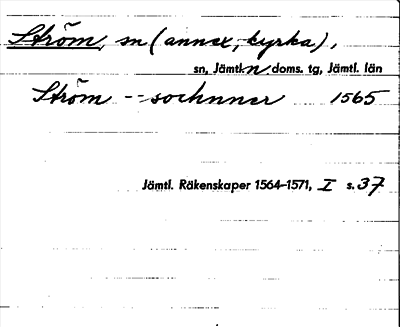 Ström, sn (annex, kyrka),
sn, Jämtl. n doms. tg, Jämtl. län
Ström -- sochnner 1565
Jämtl. Räkenskaper 1564–1571, I s. 37